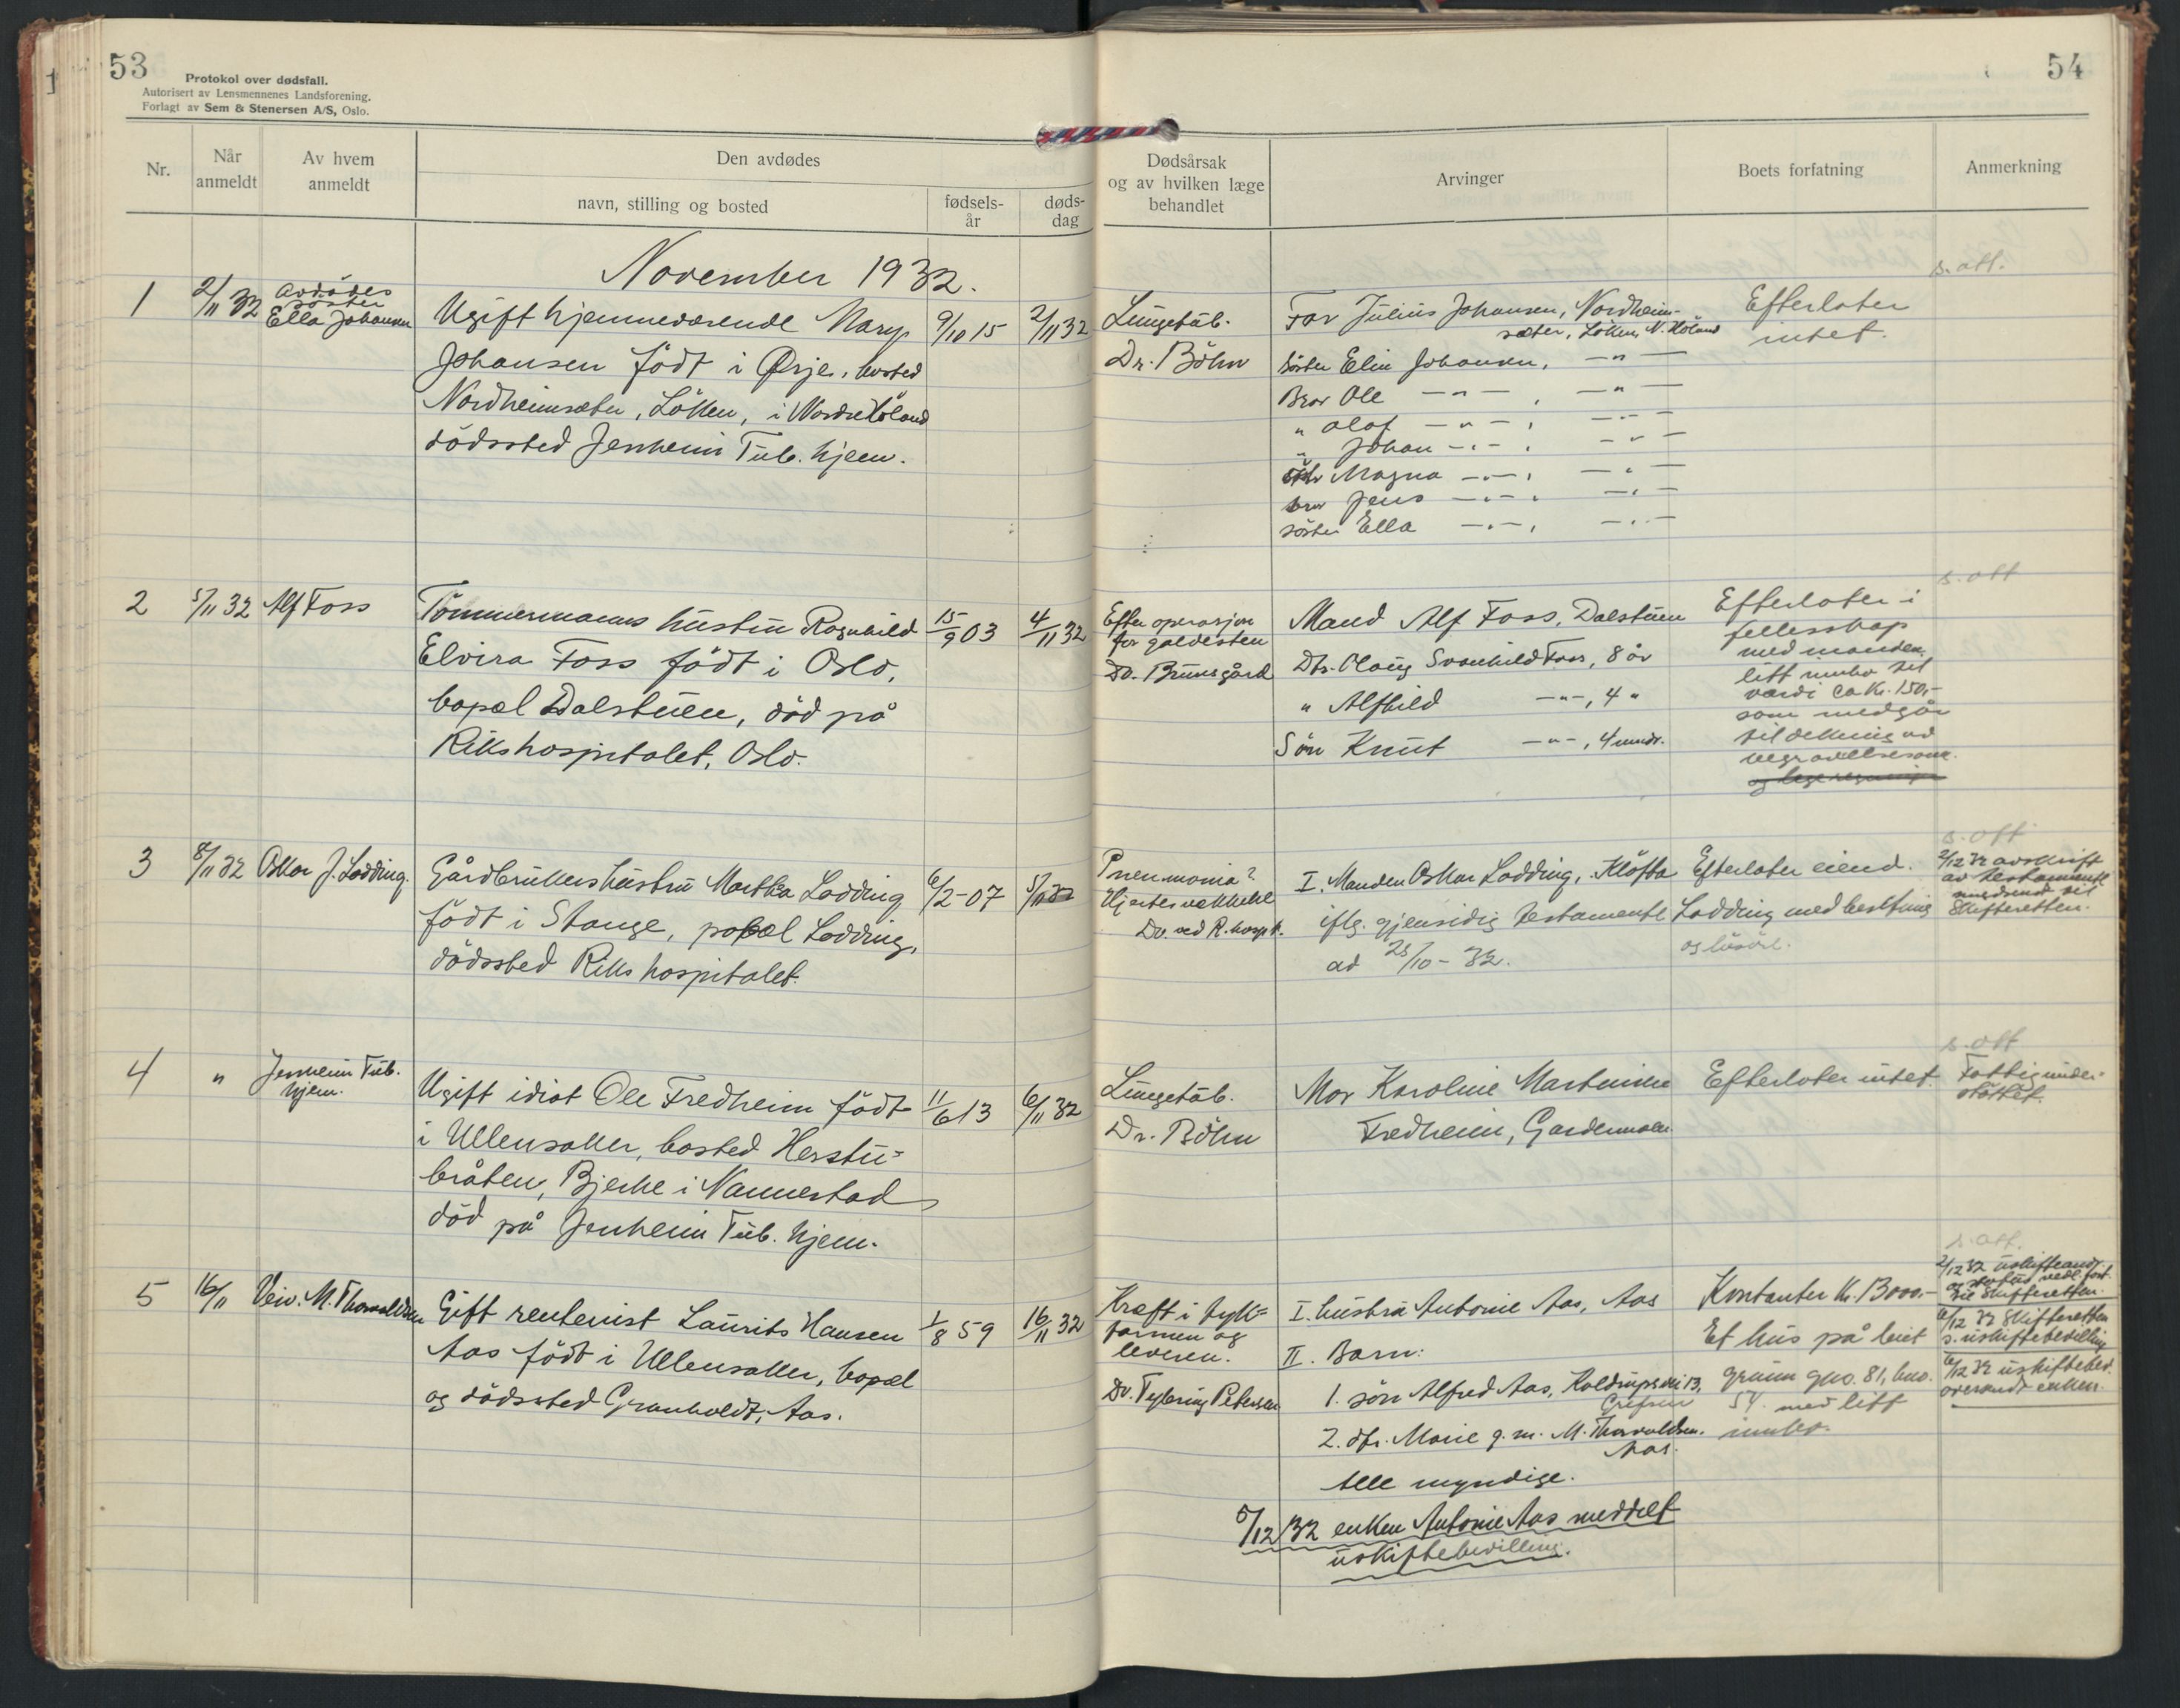 53
Protokol over dødsfall.
Autorisert av Lensmennenes Landsforening.
Forlagt av Sem & Stenersen A/S, Oslo.
Nr.
Når anmeldt
Av hvem anmeldt
Den avdødes
navn, stilling og bosted
fødsels-år
døds-dag
November 1932.
1
2/11 32
Avdødes
søster
Ella Johansen
Ugift hjemmeværende Mary
Johansen født i Ørje, bosted
Nordheimsæter, Løken, i Nordre Høland
dødssted Jessheim Tub. hjem.
9/10 15
2/11 32
2
5/11 32
Alf Foss
Tømmermanns hustru Ragnhild
Elvira Foss født i Oslo,
bopæl Dalstuen, død på
Rikshospitalet, Oslo.
15/9 03
4/11 32
3
8/11 32
Oskar J. Lodding.
Gårdbrukers hustru Martha Lodding
født i Stange, popæl Lodding,
dødssted Rikshospitalet.
6/2-07
5/11 32
4
"
Jessheim Tub.
hjem.
Ugift idiot Ole Fredheim født
i Ullensaker, bosted Herstu=
bråten, Bjerke i Nannestad
død på Jessheim Tub. hjem.
11/6 13
6/11 32
5
16/11
Veiv. M. Thorvaldsen
Gift rentenist Laurits Hansen
Aas født i Ullensaker, bopæl
og dødssted Granholdt, Aas.
1/8 59
16/11 32
54
Dødsårsak
og av hvilken læge
behandlet
Arvinger
Boets forfatning
Anmerkning
Lungetub.
Dr. Böhn
Far Julius Johansen, Nordheim-
sæter, Løken, N. Høland
søster Elin Johansen, — " —
Bror Ole — " — , — " —
" Olaf — " — , — " —
" Johan — " — , — " —
Magna — " — , — " —
bror Jens — " — , — " —
søster Ella — " — , — " —
Efterlater
intet.
s. att.
Efter operasjon
for galdesten
Dr. Brunsgård
Mand Alf Foss, Dalstuen
Dtr. Olaug Svanhild Foss, 8 år
" Alfhild — " — , 4 "
Søn Knut — " — , 4 mndr.
Efterlater i
fellesskap
med manden
litt innbo til
værdi ca Kr. 150,-
som medgår
til dekning av
begravelsesomk.
og lægeregninger
s. att
Pneumonia?
Hjertesvakkelse
Dr. ved R. hospit.
I. Manden Oskar Lodding, Kløfta
iflg. gjensidig testamente
ad 28/10-32.
Efterlater eiend.
Lodding med besetning
og løsøre.
s. att
2/12 32 avskrift
av testamente
innsendt til
Skifteretten.
Lungetub.
Dr. Böhn
Mor Karoline Martinsen
Fredheim, Gardermoen
Efterlater intet.
s. att
Fattigunder-
støttet.
Kræft i tykk=
tarmen og
leveren.
Dr. Teglbring Petersen
I. hustru Antonie Aas, Aas
II. Barn:
1. søn Alfred Aas, Koldrupsvei 13,
Grefsen
2. dtr. Marie g. m. M. Thorvaldsen.
Aas.
Alle myndige.
5/12/32 enken Antonie Aas meddelt
uskiftebevilling.
Kontanter Kr. 13000,-
Et hus på leiet
grunn gno. 81, bno.
54. med litt
innbo.
s. att.
2/12 32 uskifteandr.
til Skifteretten.
6/12 32 Skifteretten
s. uskiftebevilling
6/12 32 uskiftebev.
oversendt enken.